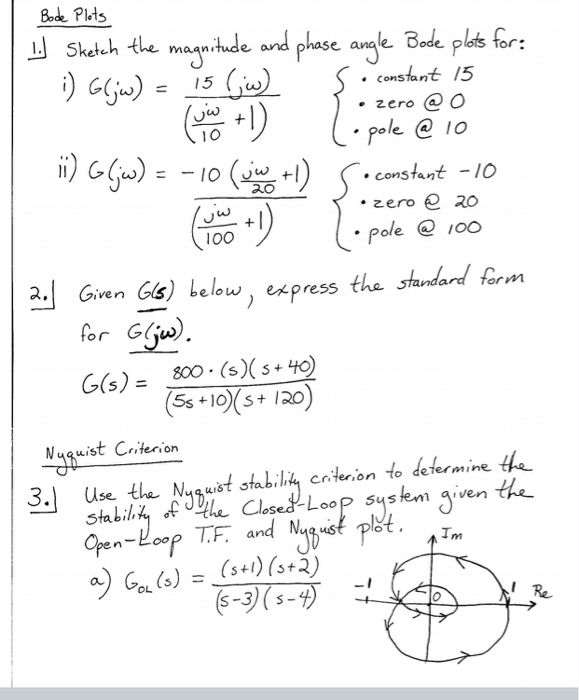 Bode Plots
1. Sketch the magnitude and phase angle Bode plots for:
i) G(jω) = 15 (jω) / (jω/10 + 1) { • constant 15
• zero @ 0
• pole @ 10
ii) G(jω) = -10 (jω/20 + 1) / (jω/100 + 1) { • constant -10
• zero @ 20
• pole @ 100
2. Given G(s) below, express the standard form
for G(jω).
G(s) = 800 · (s)(s + 40) / (5s + 10)(s + 120)
Nyquist Criterion
3. Use the Nyquist stability criterion to determine the
stability of the Closed-Loop system given the
Open-Loop T.F. and Nyquist plot.
a) G_OL (s) = (s+1)(s+2) / (s-3)(s-4)
Im
-1
0
1
Re